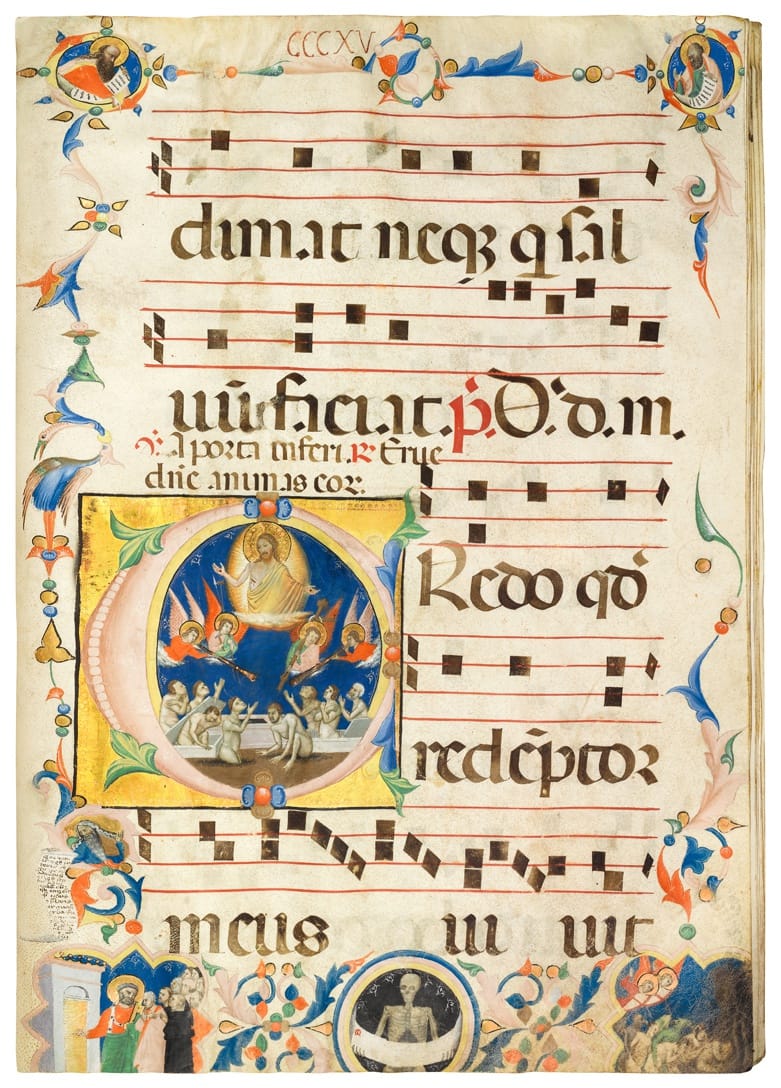 CCCXV
dimat neqꝫ q sal
uū faciat. p̄. D. d. m.
℣. A porta inferi. ℟ Erue
dn̄e animas eor.
Credo qđ
redēptor
meus ui uit